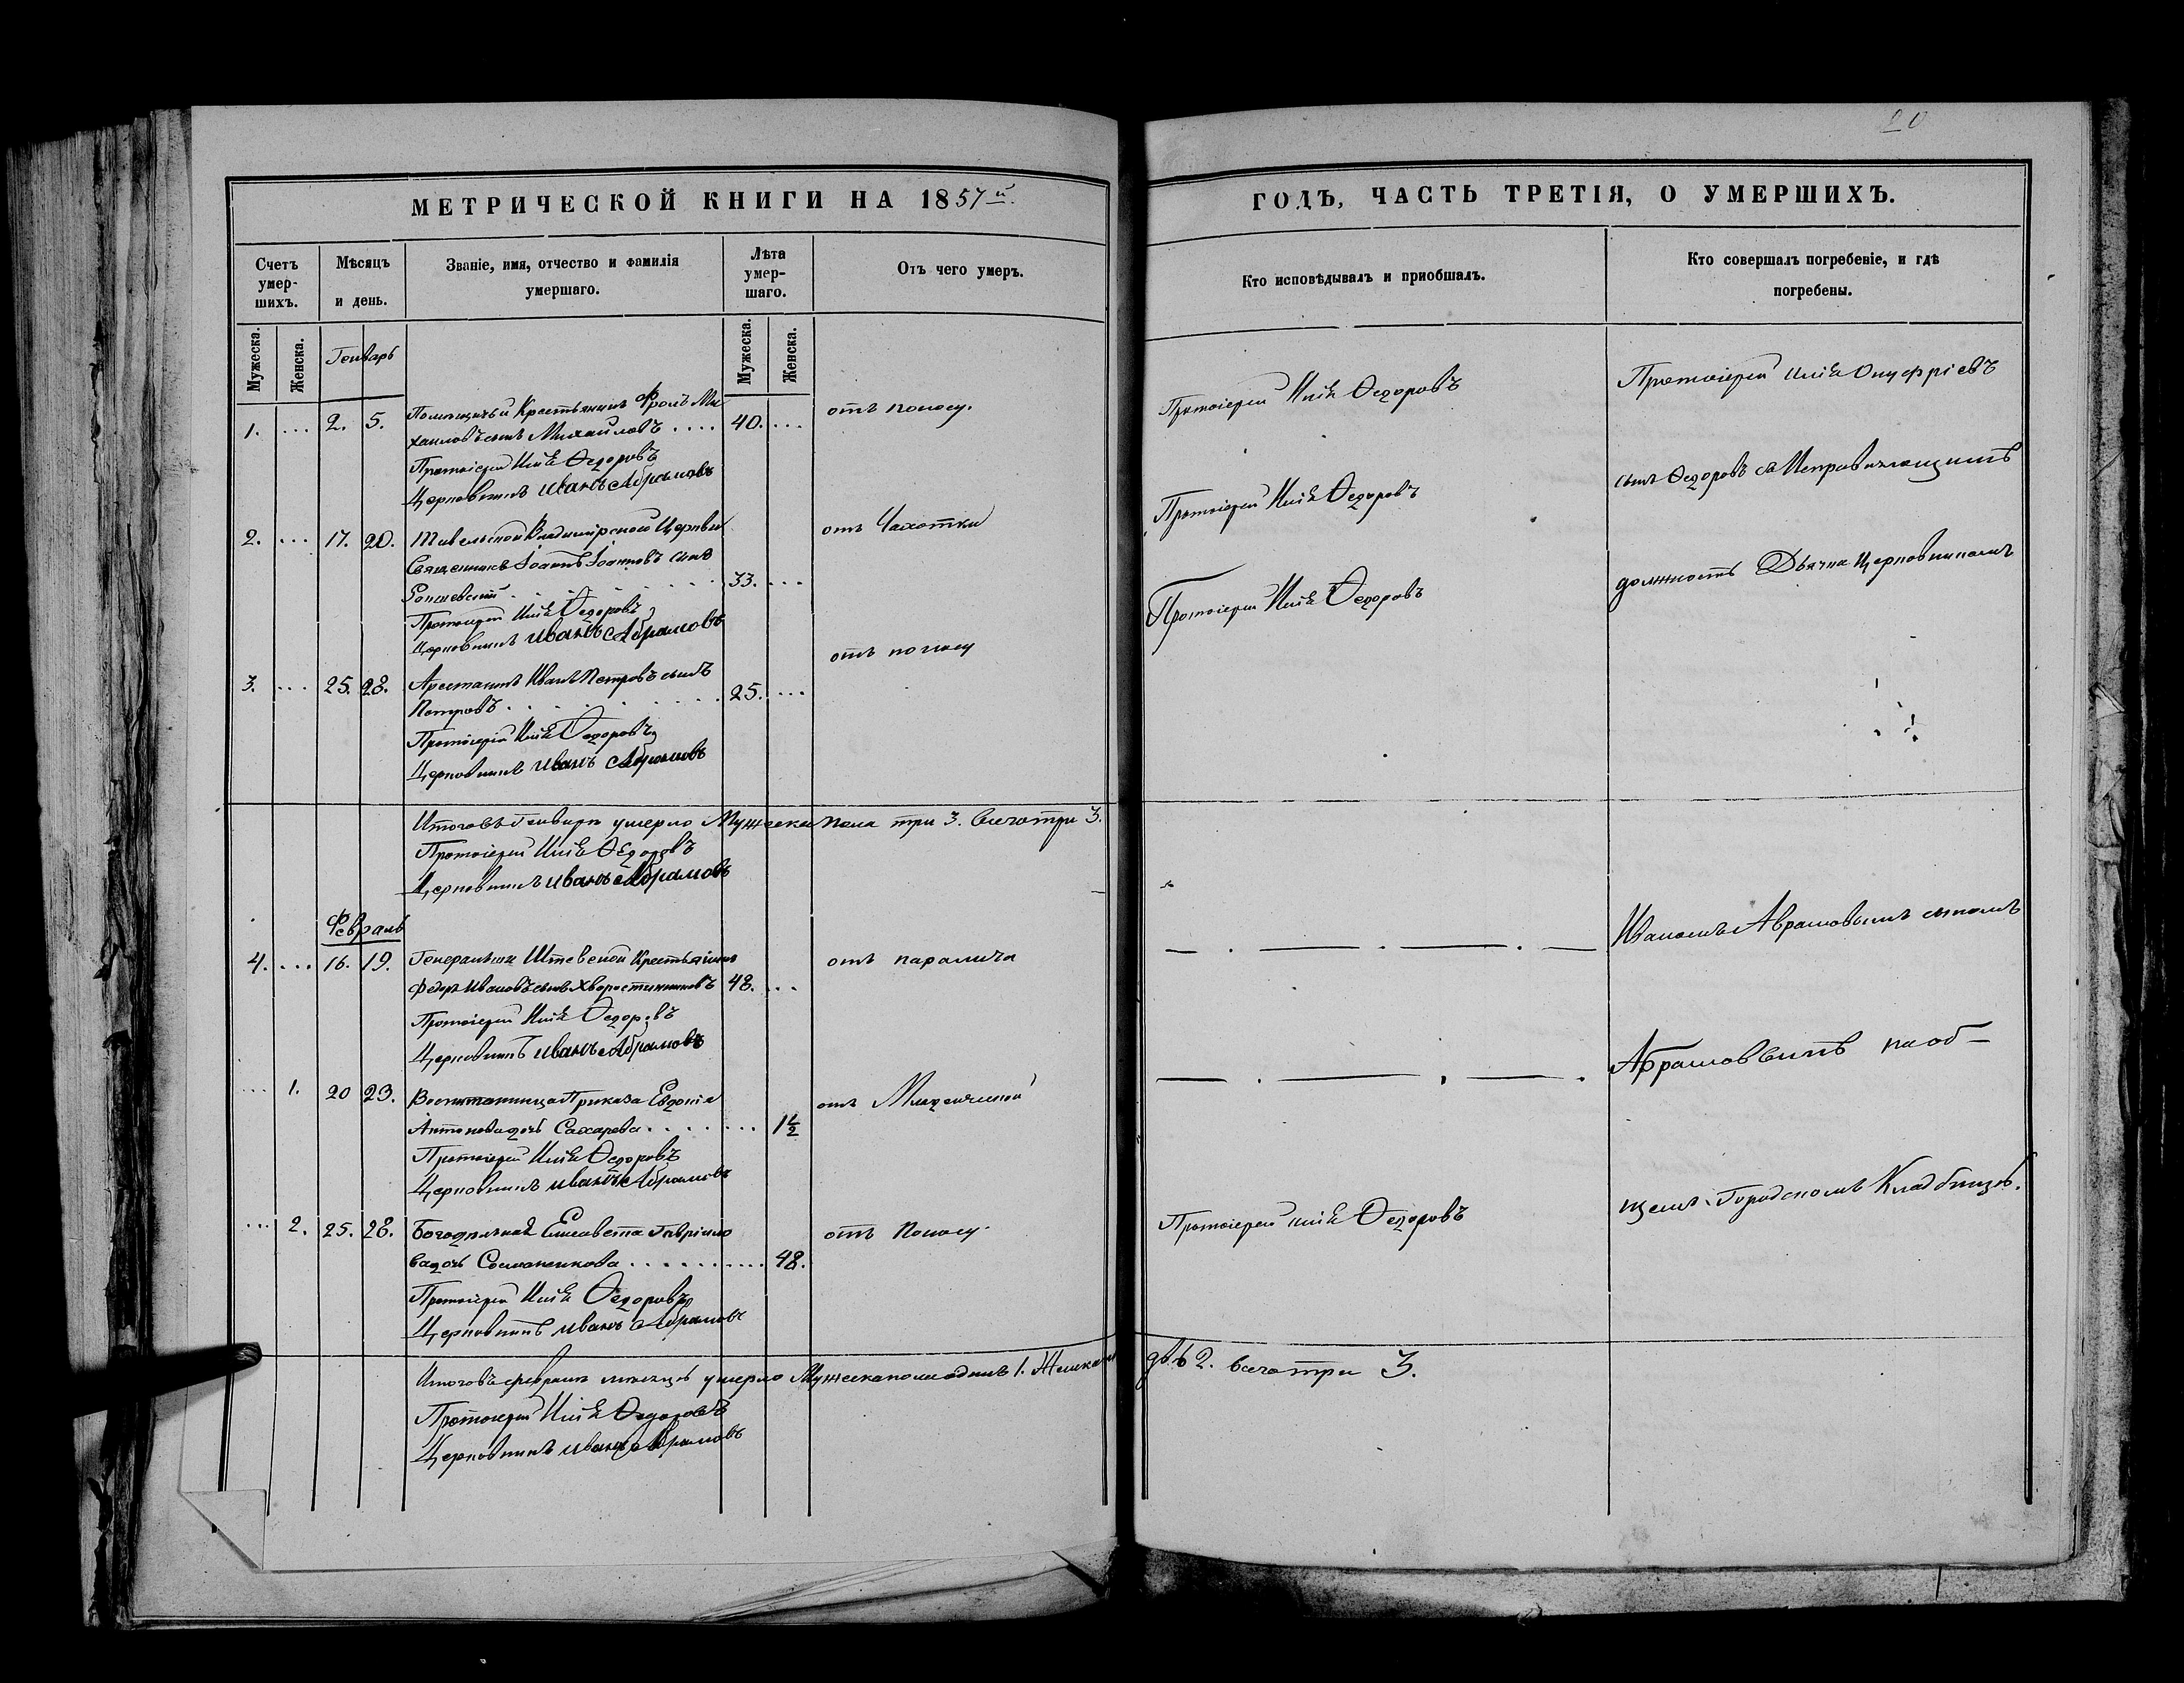 20
МЕТРИЧЕСКОЙ КНИГИ НА 1857й.
Счетъ умер-шихъ.
Мѣсяцъ и день.
Званіе, имя, отчество и фамилія
умершаго.
Лѣта умер-шаго.
Отъ чего умеръ.
Мужеска.
Женска.
Генварь
Мужеска.
Женска.
Крестьянинъ Фролъ Ми
1. ... 2. 5. хаиловъ сынъ Михайловъ .... 40. ... отъ поносу.
Протоіерей Илія Ѳедоровъ
Церковникъ Иванъ Абрамовъ
2. ... 17. 20. Владимірской Церкви отъ Чахотки
Священникъ Іоаннъ Іоанновъ сынъ
33. ...
Протоіерей Илія Ѳедоровъ
Церковникъ Иванъ Абрамовъ
3. ... 25. 28. Арестантъ Иванъ Петровъ сынъ отъ поносу
Петровъ . . . . . . . . 25. ...
Протоіерей Илія Ѳедоровъ
Церковникъ Иванъ Абрамовъ
Итого въ Генварѣ умерло Мужеска пола три 3. всего три 3.
Протоіерей Илія Ѳедоровъ
Церковникъ Иванъ Абрамовъ
Февраль
4. ... 16. 19. Генеральши Крестьянинъ отъ паралича
Федоръ Ивановъ сынъ Хворостинниковъ 48. ...
Протоіерей Илія Ѳедоровъ
Церковникъ Иванъ Абрамовъ
... 1. 20 23. Воспитанница Приказа Евдокія отъ Младенческой
Антонова дочь Сахарова ....... 1½
Протоіерей Илія Ѳедоровъ
Церковникъ Иванъ Абрамовъ
... 2. 25. 28. Богодѣльная Елисавета Гаврило отъ Поносу.
ва дочь .......... 48.
Протоіерей Илія Ѳедоровъ
Церковникъ Иванъ Абрамовъ
Итого въ февралѣ мѣсяцѣ умерло Мужеска пола одинъ 1. Женска
Протоіерей Илія Ѳедоровъ
Церковникъ Иванъ Абрамовъ
ГОДЪ, ЧАСТЬ ТРЕТІЯ, О УМЕРШИХЪ.
Кто исповѣдывалъ и приобщалъ.
Кто совершалъ погребеніе, и гдѣ
погребены.
Протоіерей Илія Ѳедоровъ
Протоіерей Илія Онуфріевъ
Протоіерей Илія Ѳедоровъ
сынъ Ѳедоровъ съ Исправляющимъ
Протоіерей Илія Ѳедоровъ
должность Дьячка Церковникомъ
Иваномъ Аврамовымъ сыномъ
Абрамовымъ на об-
Протоіерей Илія Ѳедоровъ
щемъ Городскомъ Кладбищѣ.
двѣ 2. всего три 3.